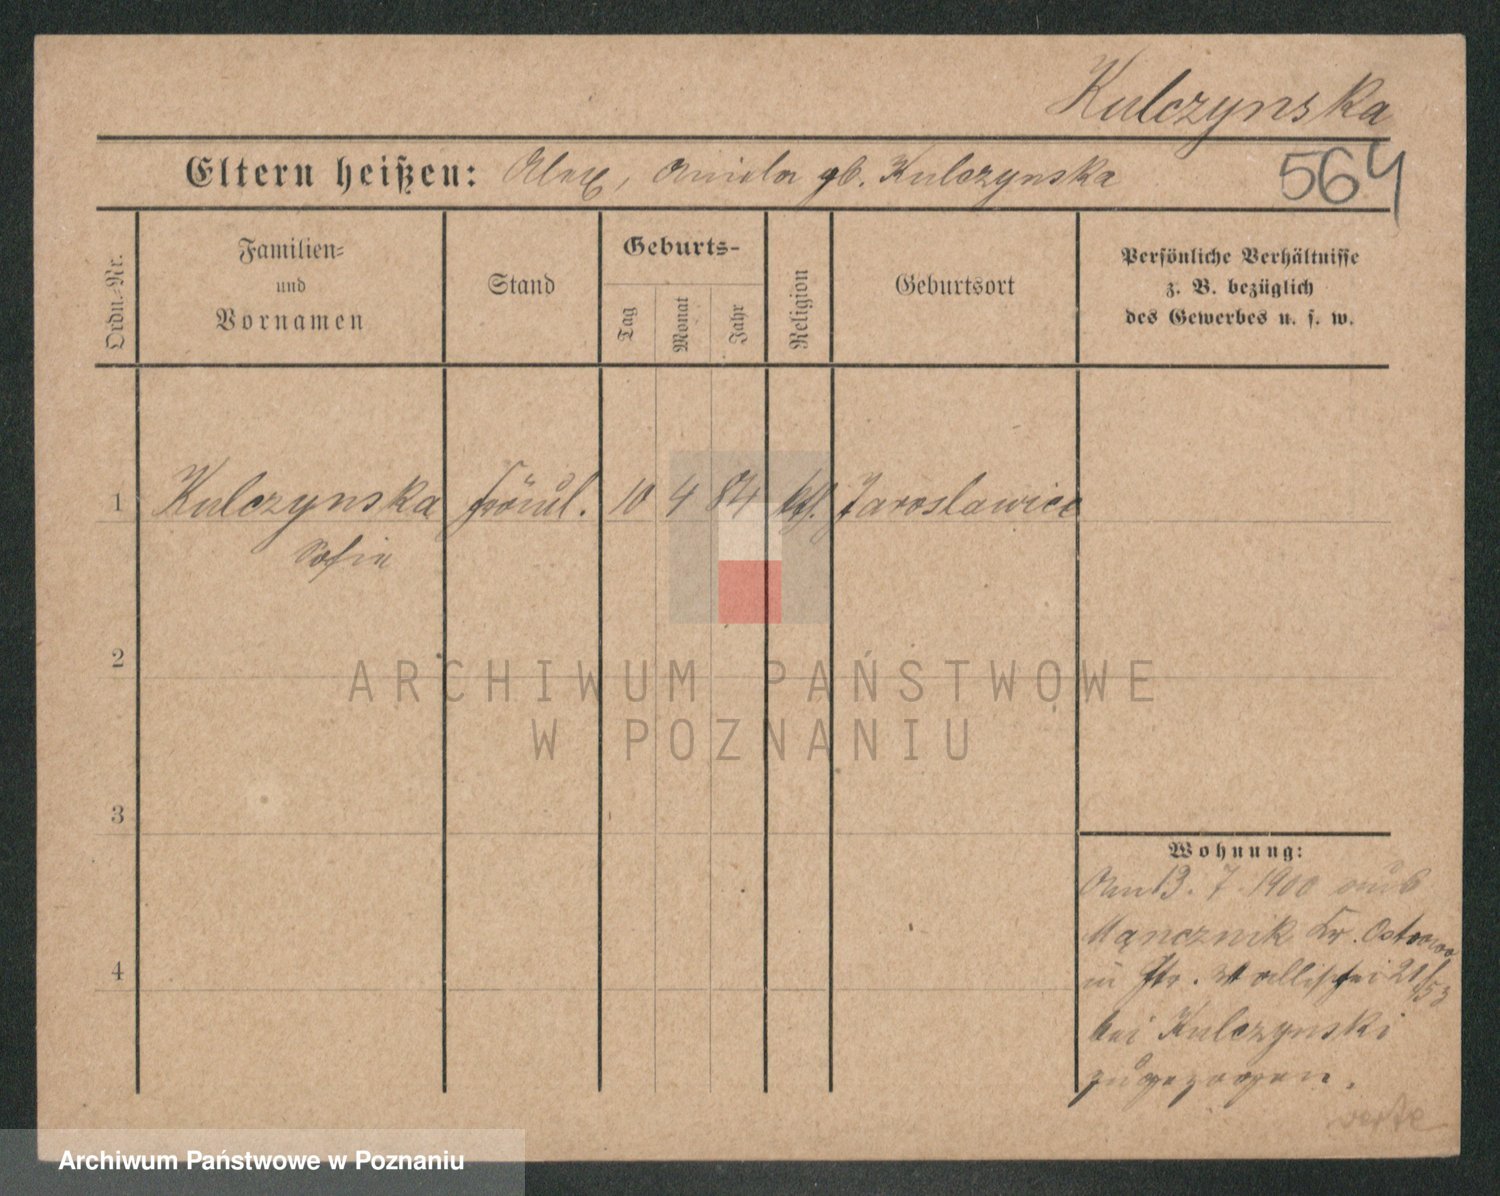 Kulczynska
Eltern heißen: Alex, Aniela gb. Kulczynska
564
Ordn.-Nr.
Familien-
und
Vornamen
Stand
Geburts-
Tag
Monat
Jahr
Religion
Geburtsort
Persönliche Verhältnisse
z. B. bezüglich
des Gewerbes u. s. w.
1 Kulczynska Fräul. 10 4 84 kth. Jaroslawice
Sofie
2
3
4
Wohnung:
Am 13. 7. 1900 aus
Kr. Ostrowo
Wallischei
bei Kulczynski
zugezogen.
verte
ARCHIWUM PAŃSTWOWE
W POZNANIU
Archiwum Państwowe w Poznaniu